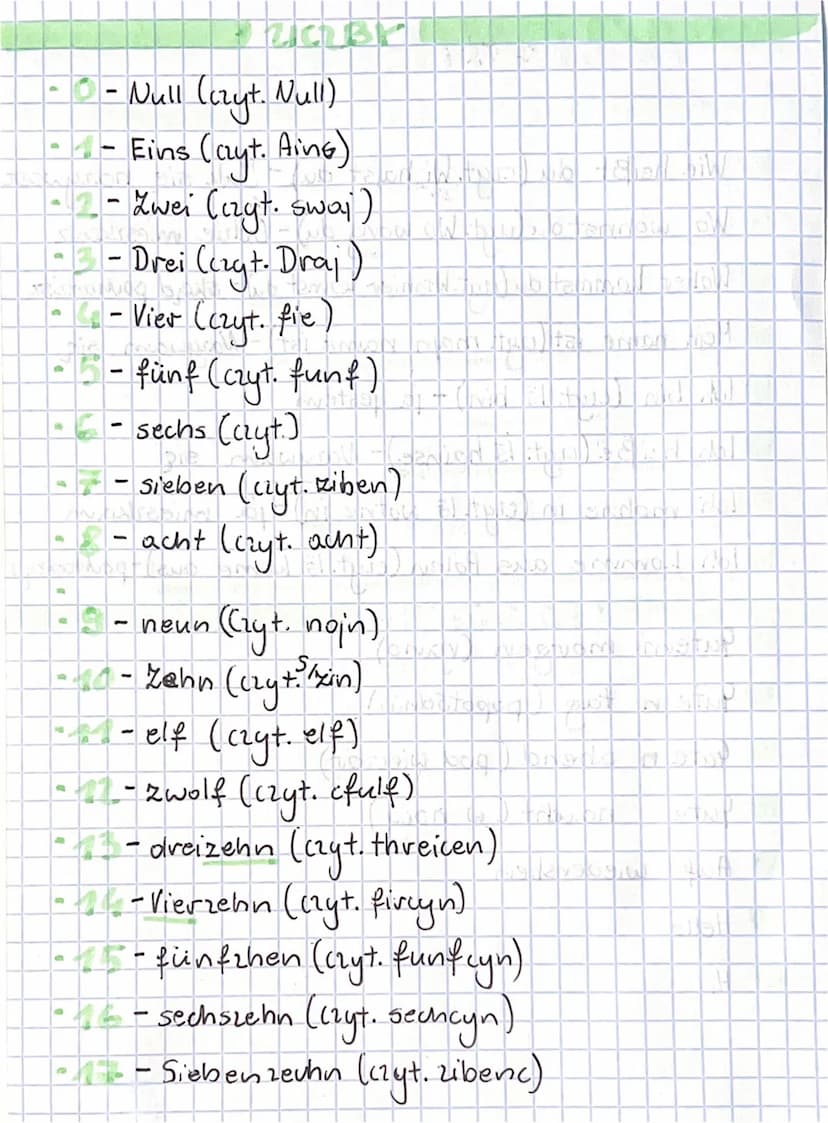 LICZBY
- 0 - Null (czyt. Null)
- 1 - Eins (czyt. Ains)
- 2 - Zwei (czyt. swaj)
- 3 - Drei (czyt. Draj)
- 4 - Vier (czyt. fie)
- 5 - fünf (czyt. funf)
- 6 - sechs (czyt.)
- 7 - sieben (czyt. ziben)
- 8 - acht (czyt. acht)
-
- 9 - neun (czyt. nojn)
- 10 - Zehn (czyt. S/xin)
- 11 - elf (czyt. elf)
- 12 - zwolf (czyt. cfulf)
- 13 - dreizehn (czyt. threicen)
- 14 - Vierzehn (czyt. fircyn)
- 15 - fünfzhen (czyt. funfcyn)
- 16 - sechszehn (czyt. sechcyn)
- 17 - Siebenzeuhn (czyt. zibenc)